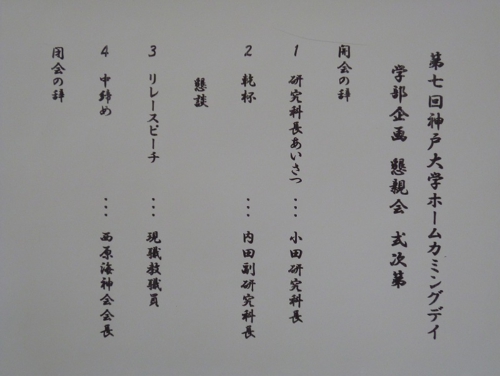 第七回神戸大学ホームカミングデイ
学部企画 懇親会 式次第
開会の辞
1 研究科長あいさつ … 小田研究科長
2 乾杯 … 内田副研究科長
懇談
3 リレースピーチ … 現職教職員
4 中締め … 西原海神会会長
閉会の辞